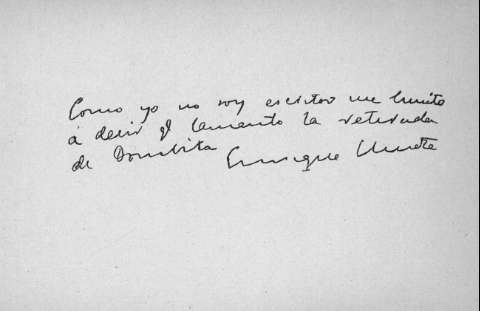 Como yo no soy escritor me limito
á decir q lamento la retirada
de Bombita
Enrique